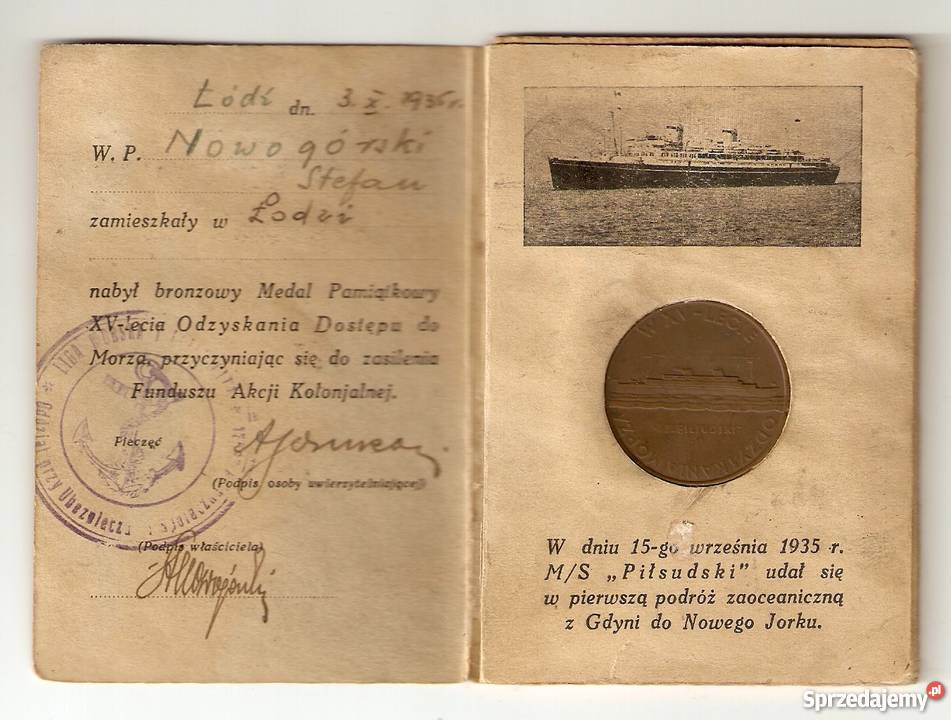 Łódź dn. 3. X. 1935 r.
W. P. Nowogórski
Stefan
zamieszkały w Łodzi
nabył bronzowy Medal Pamiątkowy
XV-lecia Odzyskania Dostępu do
Morza, przyczyniając się do zasilenia
Funduszu Akcji Kolonjalnej.
LIGA MORSKA I
Oddział przy Ubezpiecza
Pieczęć
(Podpis osoby uwierzytelniającej)
(Podpis właściciela)
W XV-LECIE
ODZYSKANIA
W dniu 15-go września 1935 r.
M/S „Piłsudski" udał się
w pierwszą podróż zaoceaniczną
z Gdyni do Nowego Jorku.
Sprzedajemy.pl